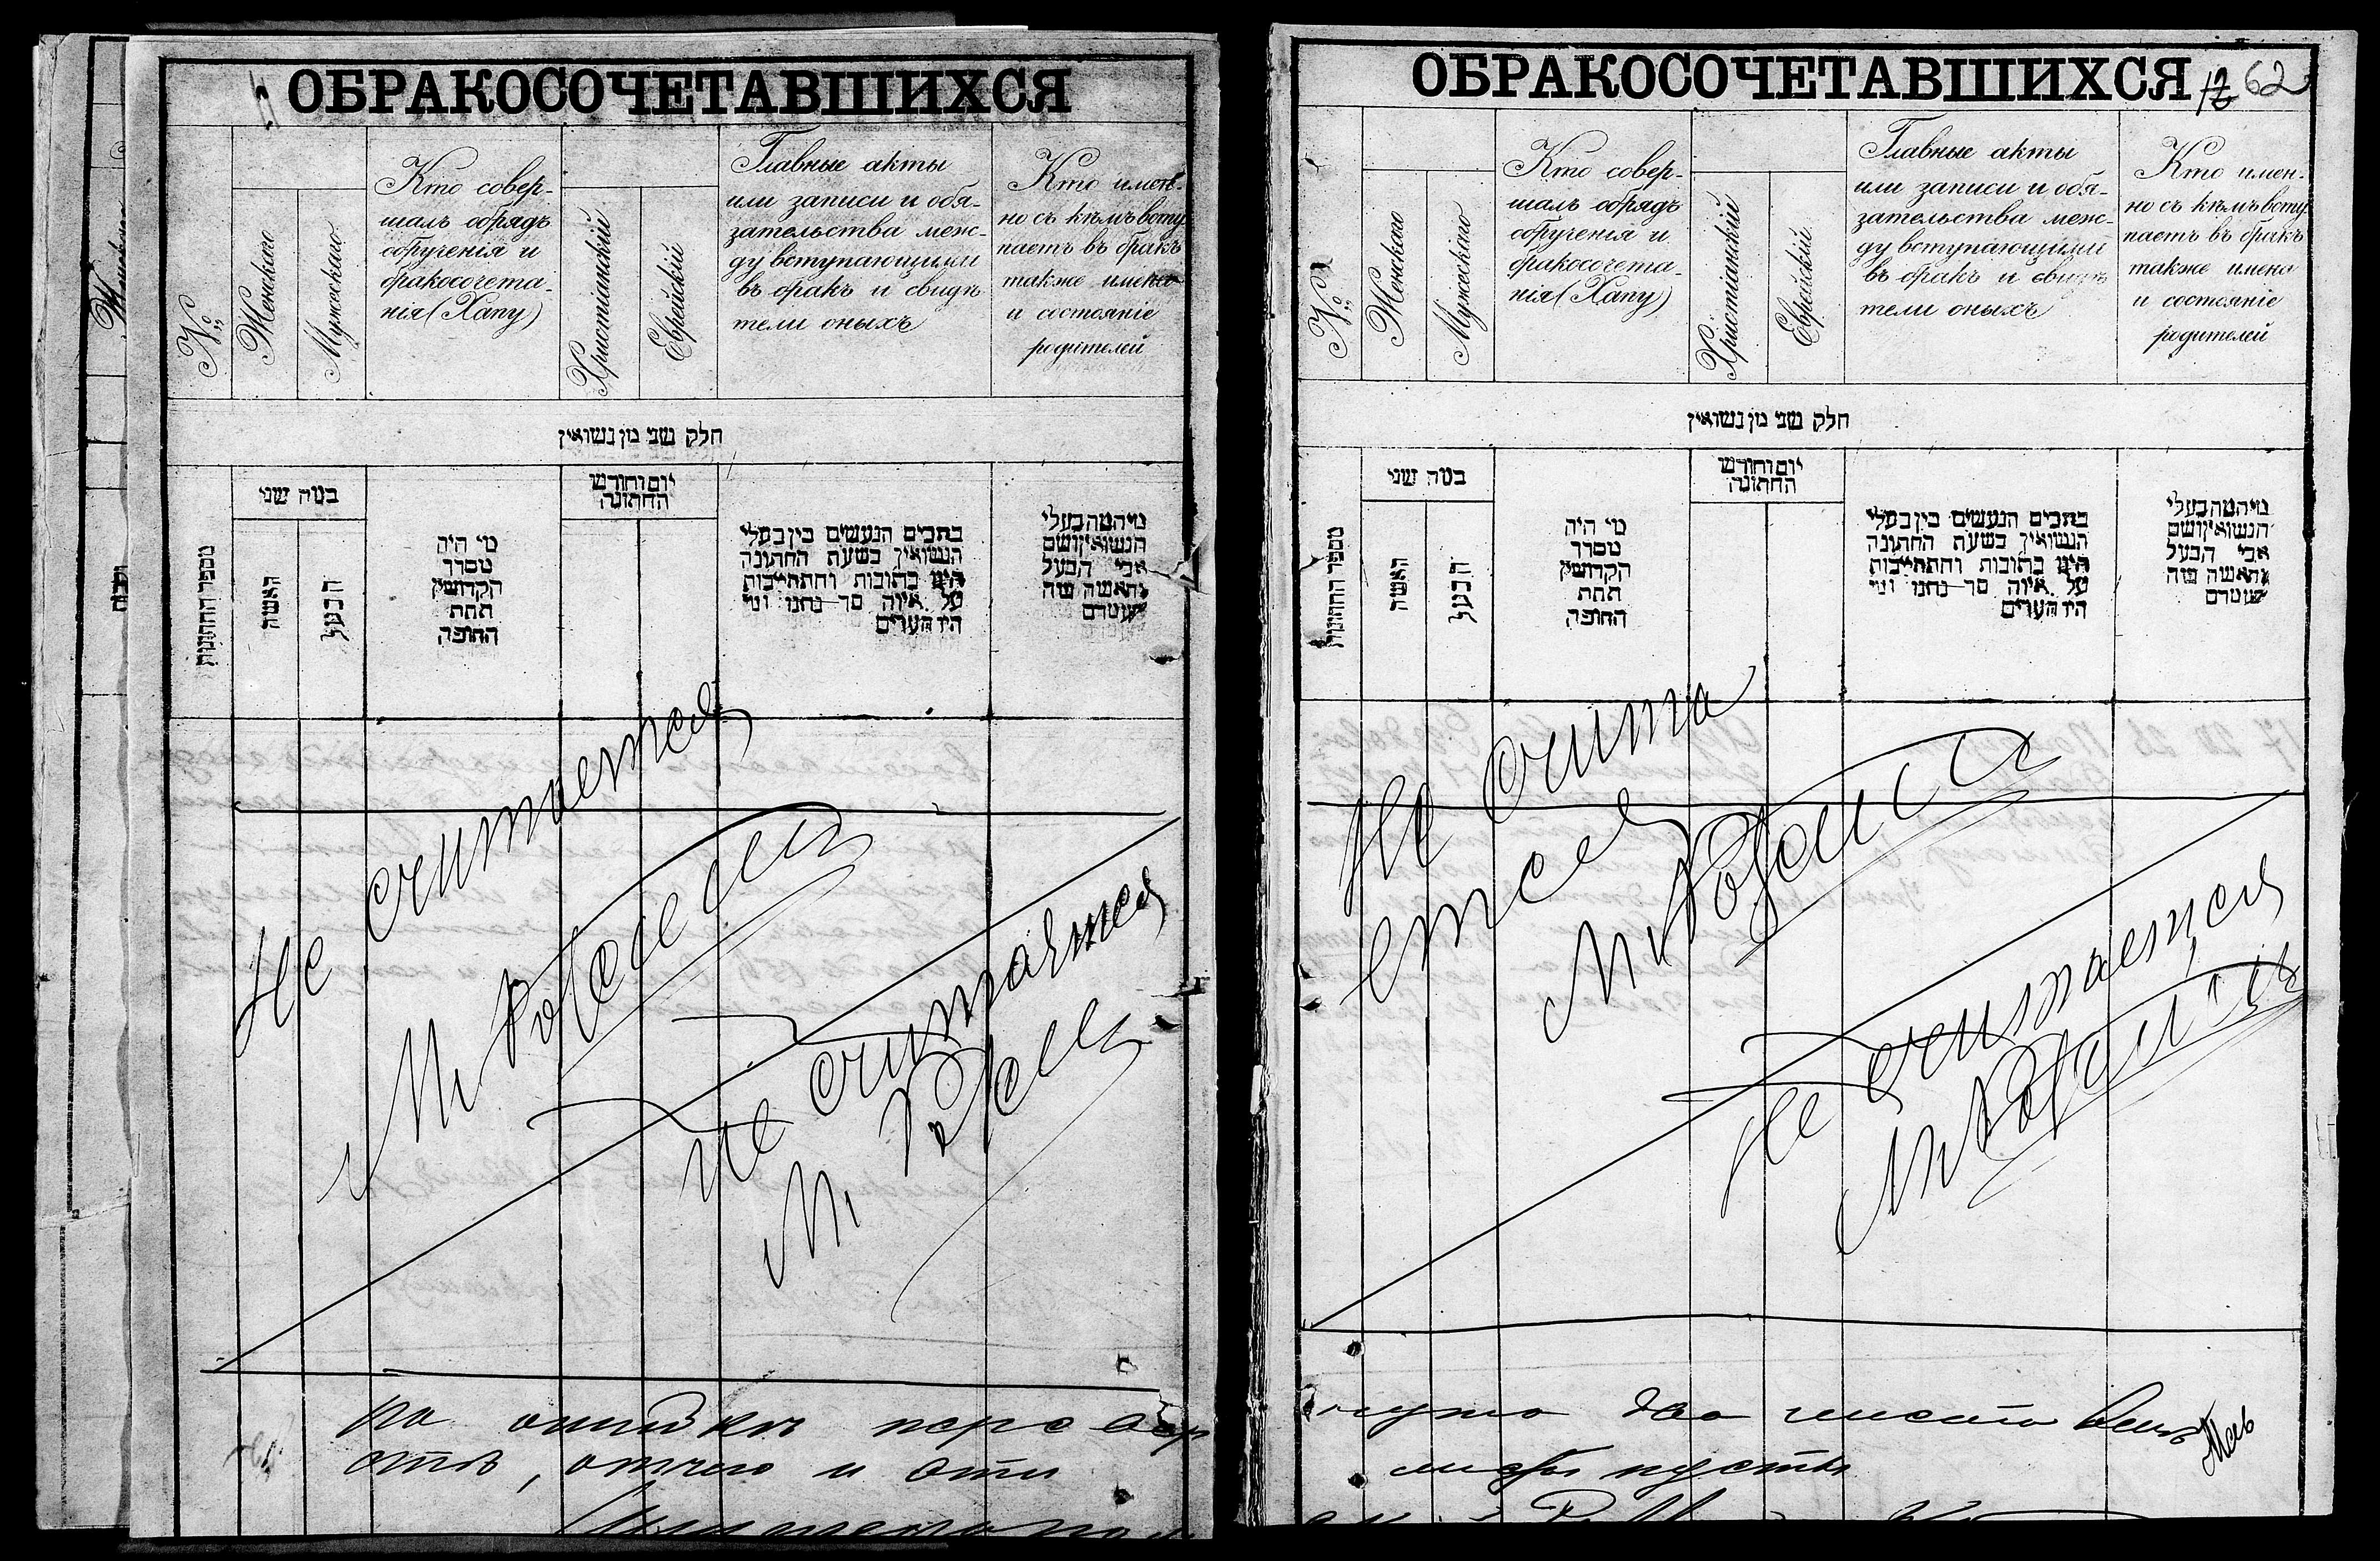 ОБРАКОСОЧЕТАВШИХСЯ
№
Женскаго
Мужескаго
Кто совер-
шалъ обрядъ
обрученія и
бракосочета-
нія (Хапу)
Христіанскій
Еврейскій
Главные акты
или записи и обя-
зательства меж-
ду вступающими
въ бракъ и свидѣ
тели оныхъ
Кто имен-
но съ кѣмъ всту
паетъ въ бракъ
также имена
и состояніе
родителей
חלק שני מן נשואין
מספר החתונות
כמה שני
האשה
הבעל
מי היה
מסדר
הקדושין
תחת
החופה
יום וחודש
החתונה
כתבים הנעשים בין בעלי
הנשואין בשעת החתונה
היינו כתובות והתחייבות
על איזה סך נתנו ומי
היו העדים
מי המה בעלי
הנשואין ושם
אבי הבעל
והאשה ומה
מעמדם
Не считается
Не считается
по ошибкѣ пере
отъ, отчего и эти
ОБРАКОСОЧЕТАВШИХСЯ
62
№
Женскаго
Мужескаго
Кто совер-
шалъ обрядъ
обрученія и
бракосочета-
нія (Хапу)
Христіанскій
Еврейскій
Главные акты
или записи и обя-
зательства меж-
ду вступающими
въ бракъ и свидѣ
тели оныхъ
Кто имен-
но съ кѣмъ всту
паетъ въ бракъ
также имена
и состояніе
родителей
חלק שני מן נשואין
מספר החתונות
כמה שני
האשה
הבעל
מי היה
מסדר
הקדושין
תחת
החופה
יום וחודש
החתונה
כתבים הנעשים בין בעלי
הנשואין בשעת החתונה
היינו כתובות והתחייבות
על איזה סך נתנו ומי
היו העדים
מי המה בעלי
הנשואין ושם
אבי הבעל
והאשה ומה
מעמדם
Не счита
ется
Не считается
два листа
пусты